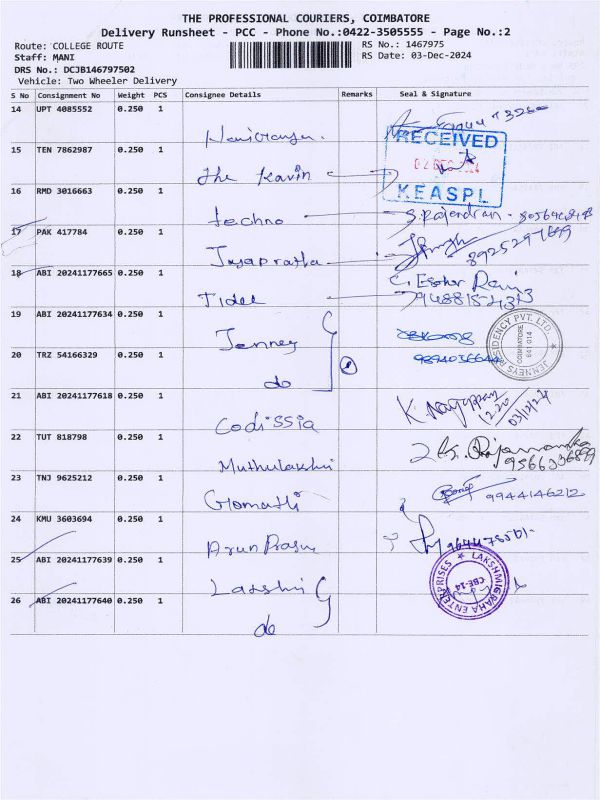 THE PROFESSIONAL COURIERS, COIMBATORE
Delivery Runsheet - PCC - Phone No.:0422-3505555 - Page No.:2
Route: COLLEGE ROUTE
RS No.: 1467975
Staff: MANI
RS Date: 03-Dec-2024
DRS No.: DCJB146797502
Vehicle: Two Wheeler Delivery
S No Consignment No Weight PCS Consignee Details Remarks Seal & Signature
14 UPT 4085552 0.250 1
RECEIVED
15 TEN 7862987 0.250 1 The Kavin
KEASPL
16 RMD 3016663 0.250 1 techno S. Rajendran
17 PAK 417784 0.250 1 Jayapratha 8925297699
18 ABI 20241177665 0.250 1 Tidel
19 ABI 20241177634 0.250 1 Jenney
JENNEYS RESIDENCY PVT. LTD.
COIMBATORE
641 014
20 TRZ 54166329 0.250 1 do 9894036644
21 ABI 20241177618 0.250 1 Codissia K. Nagappan 12.20 03/12/24
22 TUT 818798 0.250 1 Muthulakshmi
23 TNJ 9625212 0.250 1 Gomathi 9944146212
24 KMU 3603694 0.250 1
25 ABI 20241177639 0.250 1 Lakshmi
LAKSHMIGRAHA ENTERPRISES
CBE-14
26 ABI 20241177640 0.250 1 do